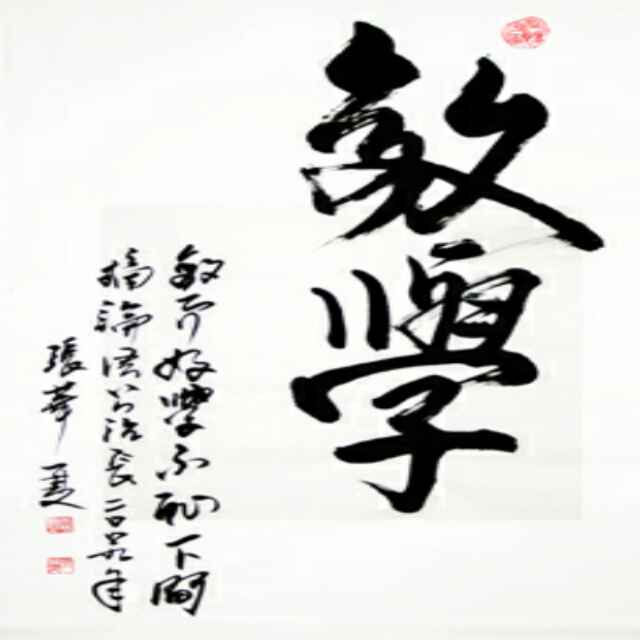 敏學
敏而好學不恥下問
摘論語公冶長二〇〇九年
張華